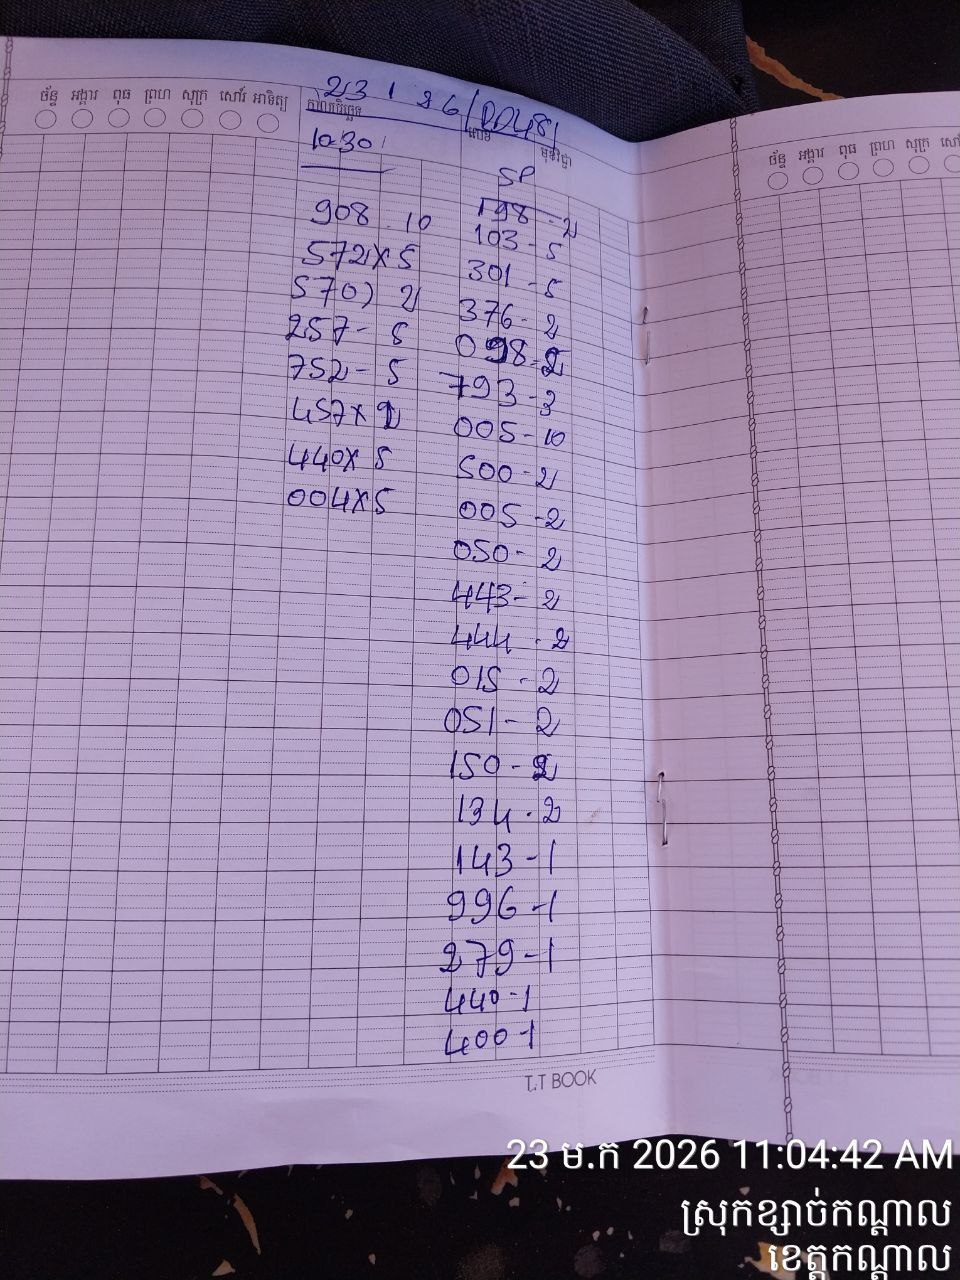 ច័ន្ទ អង្គារ ពុធ ព្រហ សុក្រ សៅរ៍ អាទិត្យ
23 1 26/DD481
កាលបរិច្ឆេទ
មុខវិជ្ជា
10:30
908 - 10
572x5
570) 2
257 - 5
752 - 5
457x2
440x5
004x5
SP
198 - 2
103 - 5
301 - 5
376 - 2
098 - 2
793 - 3
005 - 10
500 - 2
005 - 2
050 - 2
443 - 2
444 - 2
015 - 2
051 - 2
150 - 2
134 - 2
143 - 1
996 - 1
279 - 1
440 - 1
400 - 1
T.T BOOK
ច័ន្ទ អង្គារ ពុធ ព្រហ សុក្រ សៅរ៍
23 ម.ក 2026 11:04:42 AM
ស្រុកខ្សាច់កណ្ដាល
ខេត្តកណ្ដាល